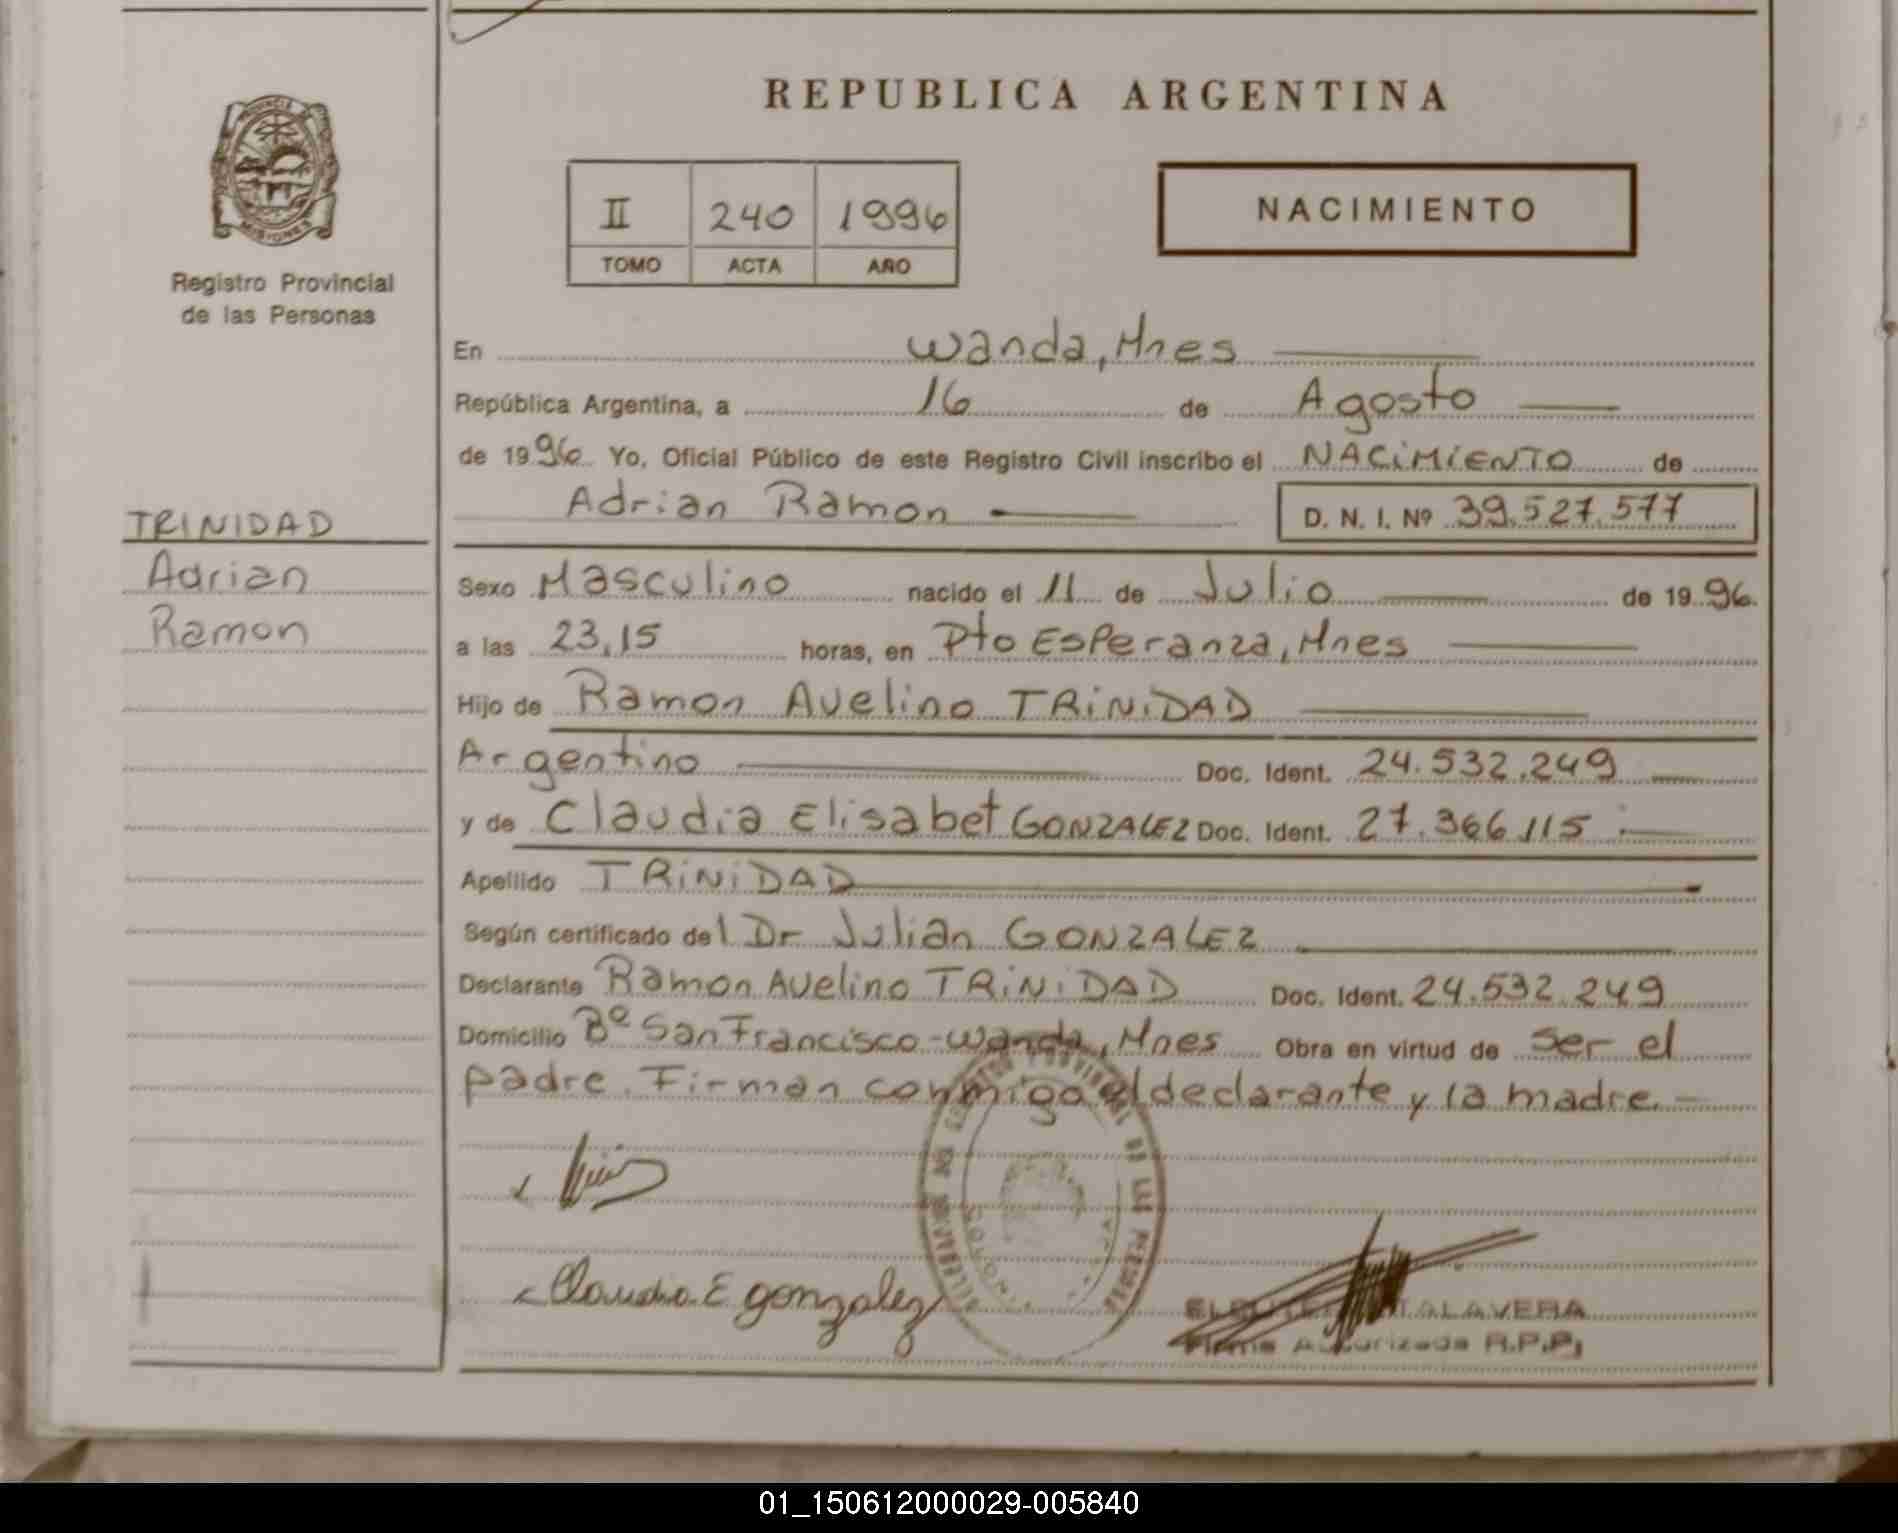 PROVINCIA
MISIONES
Registro Provincial
de las Personas
TRINIDAD
Adrian
Ramon
REPUBLICA ARGENTINA
II 240 1996
TOMO ACTA AÑO
NACIMIENTO
En Wanda, Mnes
República Argentina, a 16 de Agosto
de 1996 Yo, Oficial Público de este Registro Civil inscribo el NACIMIENTO de
Adrian Ramon D. N. I. Nº 39.527.577
Sexo Masculino nacido el 11 de Julio de 1996.
a las 23,15 horas, en Pto Esperanza, Mnes
Hijo de Ramon Avelino TRINIDAD
Argentino Doc. Ident. 24.532.249
y de Claudia Elisabet GONZALEZ Doc. Ident. 27.366.115
Apellido TRINIDAD
Según certificado del Dr Julian GONZALEZ
Declarante Ramon Avelino TRINIDAD Doc. Ident. 24.532.249
Domicilio Bº San Francisco-Wanda, Mnes Obra en virtud de ser el
padre. Firman conmigo el declarante y la madre.
Claudia E gonzalez
TALAVERA
Firma Autorizada R.P.P.
01_150612000029-005840